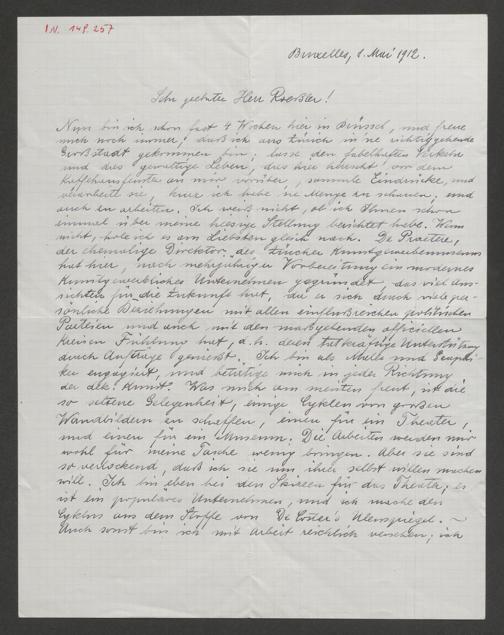 I.N. 149.257
Bruxelles, 1. Mai 1912.
Sehr geehrter Herr Roessler!
Nun bin ich schon fast 4 Wochen hier in Brüssel, und freue
mich noch immer, daß ich aus Zürich in 'ne richtiggehende
Großstadt gekommen bin; lasse den fabelhaften Verkehr
und das gewaltige Leben, das hier herrscht, vor dem
Kaffehausfenster an mir vorüber, sammle Eindrücke, und
verarbeite sie, kurz ich habe 'ne Menge zu schauen, und
auch zu arbeiten. Ich weiß nicht, ob ich Ihnen schon
einmal über meine hiesige Stellung berichtet habe. Wenn
nicht, hole ich es am Liebsten gleich nach. De Praetere,
der ehemalige Direktor des Zürcher Kunstgewerbemuseums
hat hier, nach mehrjähriger Vorbereitung ein modernes
kunstgewerbliches Unternehmen gegründet, das viel Aus-
sichten für die Zukunft hat, da er sich durch viele per-
sönliche Beziehungen mit allen einflußreichen politischen
Parteien und auch mit den maßgebenden officiellen
Kreisen Fühlung hat, d.h. deren tatkräftige Unterstützung
durch Aufträge genießt. Ich bin als Maler und Graphi-
ker engagiert, und betätige mich in jeder Richtung
der dek. Kunst. Was mich am meisten freut, ist die
so seltene Gelegenheit, einige Cyklen von großen
Wandbildern zu schaffen, einen für ein Theater,
und einen für ein Museum. Die Arbeiten werden mir
wohl für meine Tasche wenig bringen. Aber sie sind
so verlockend, daß ich sie um ihrer selbst willen machen
will. Ich bin eben bei den Skizzen für das Theater; es
ist ein populäres Unternehmen, und ich mache den
Cyklus aus dem Stoffe von De Coster's Ulenspiegel. ~
Auch sonst bin ich mit Arbeit reichlich versehen; ich